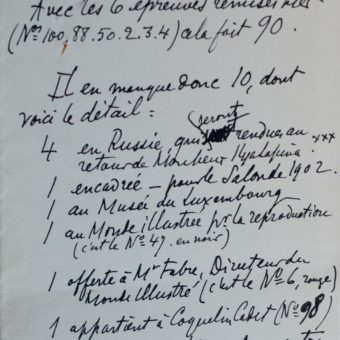 Avec les 6 épreuves remises hier
(Nos 100, 88. 50. 2. 3. 4) cela fait 90.
Il en manque donc 10, dont
voici le détail :
4 en Russie, qui seront rendues au xxx
retour de Monsieur
1 encadrée – pour le Salon de 1902.
1 au Musée du Luxembourg
1 au Monde illustré pr la reproduction
(c'est le No 49. en noir)
1 offerte à Mr Fabre, Directeur du
Monde illustré (c'est le No 6, rouge)
1 appartient à Coquelin Cadet (No 98)